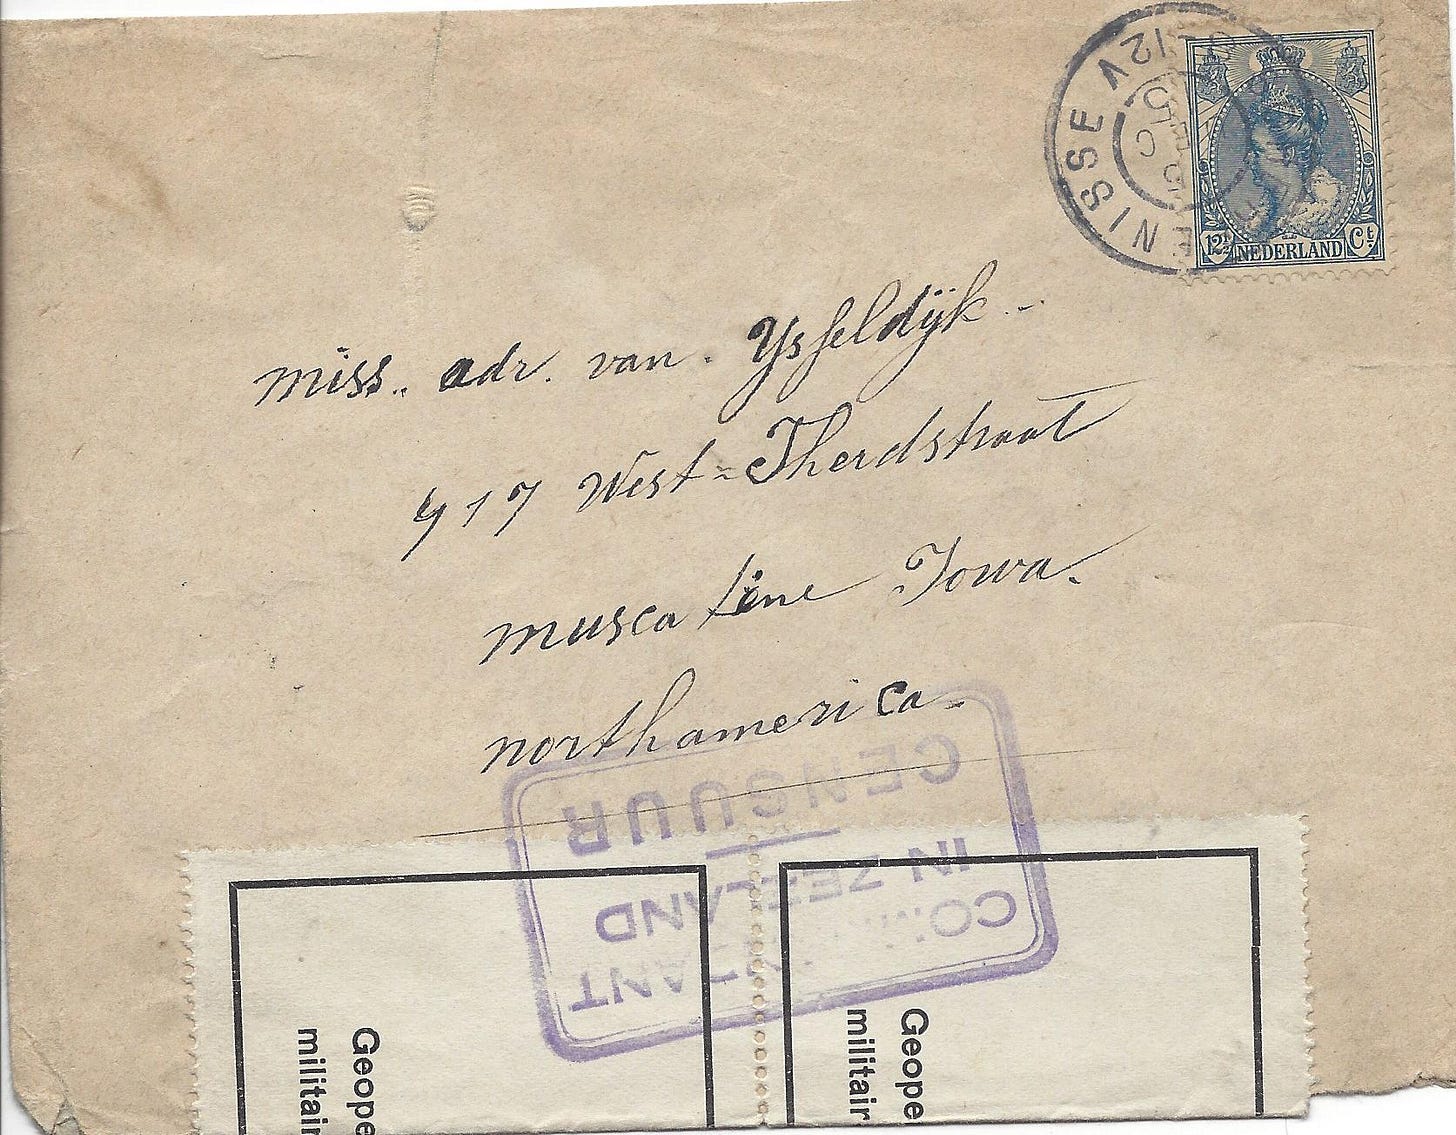 ENISSE
12V
12½ NEDERLAND Ct
miss.. adr. van. Ysseldÿk
417 West=Therdstraat
muscatine Iowa.
northamerica
COMMANDANT
IN ZEELAND
CENSUUR
Geope
militair
Geope
militair